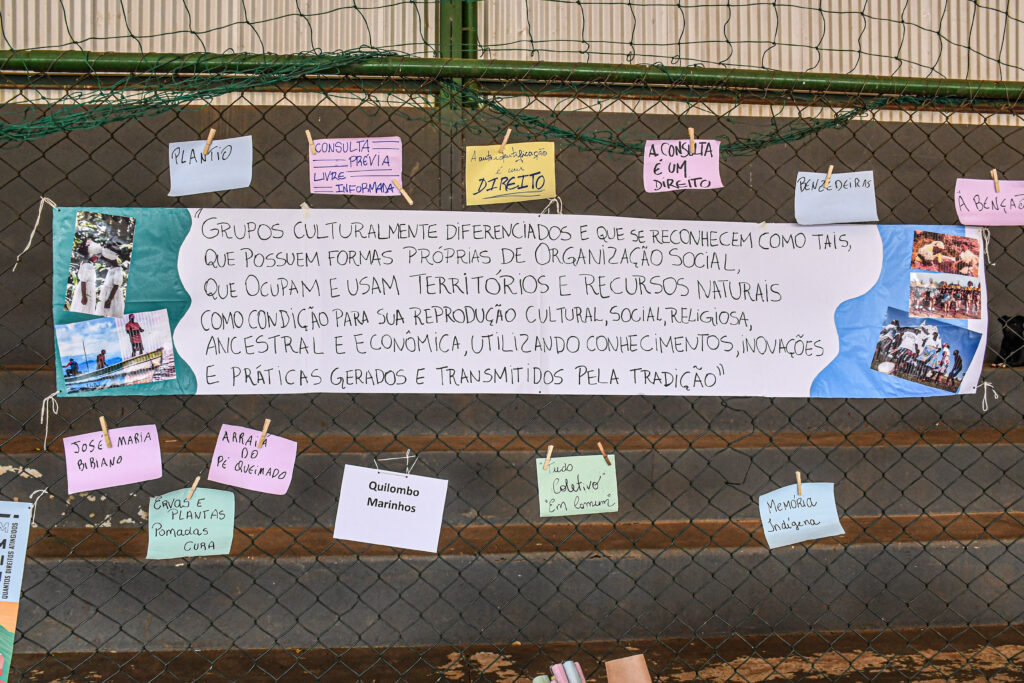 PLANTIO
CONSULTA
PRÉVIA
LIVRE
INFORMADA
A autoidentificação
é um
DIREITO
A CONSULTA
É UM
DIREITO
BENZEDEIRAS
A BENÇÃO
"GRUPOS CULTURALMENTE DIFERENCIADOS E QUE SE RECONHECEM COMO TAIS,
QUE POSSUEM FORMAS PRÓPRIAS DE ORGANIZAÇÃO SOCIAL,
QUE OCUPAM E USAM TERRITÓRIOS E RECURSOS NATURAIS
COMO CONDIÇÃO PARA SUA REPRODUÇÃO CULTURAL, SOCIAL, RELIGIOSA,
ANCESTRAL E ECONÔMICA, UTILIZANDO CONHECIMENTOS, INOVAÇÕES
E PRÁTICAS GERADOS E TRANSMITIDOS PELA TRADIÇÃO"
JOSÉ MARIA
BIBIANO
ARRAIÁ
DO
PÉ QUEIMADO
ERVAS E
PLANTAS
Pomadas
CURA
Quilombo
Marinhos
Tudo
Coletivo"
"Em Comum"
MEMÓRIA
Indígena
QUANTOS DIREITOS ATINGIDOS